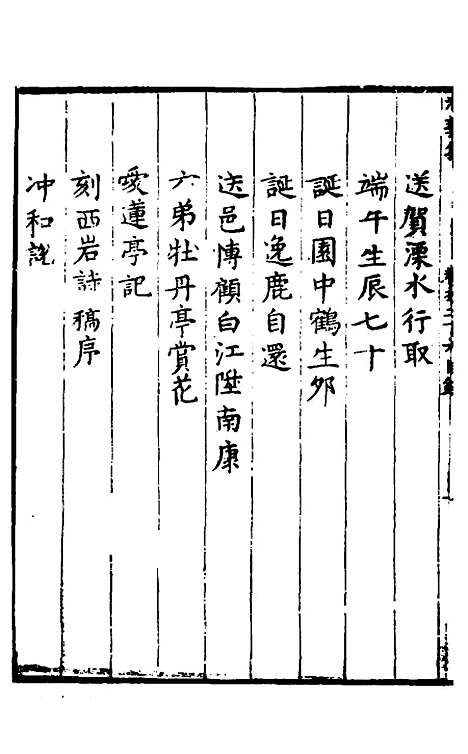 送賀溧水行取
端午生辰七十
誕日園中鶴生夘
誕日逸鹿自還
送邑博顧白江陞南康
六弟牡丹亭賞花
愛蓮亭記
刻西岩詩稿序
冲和說